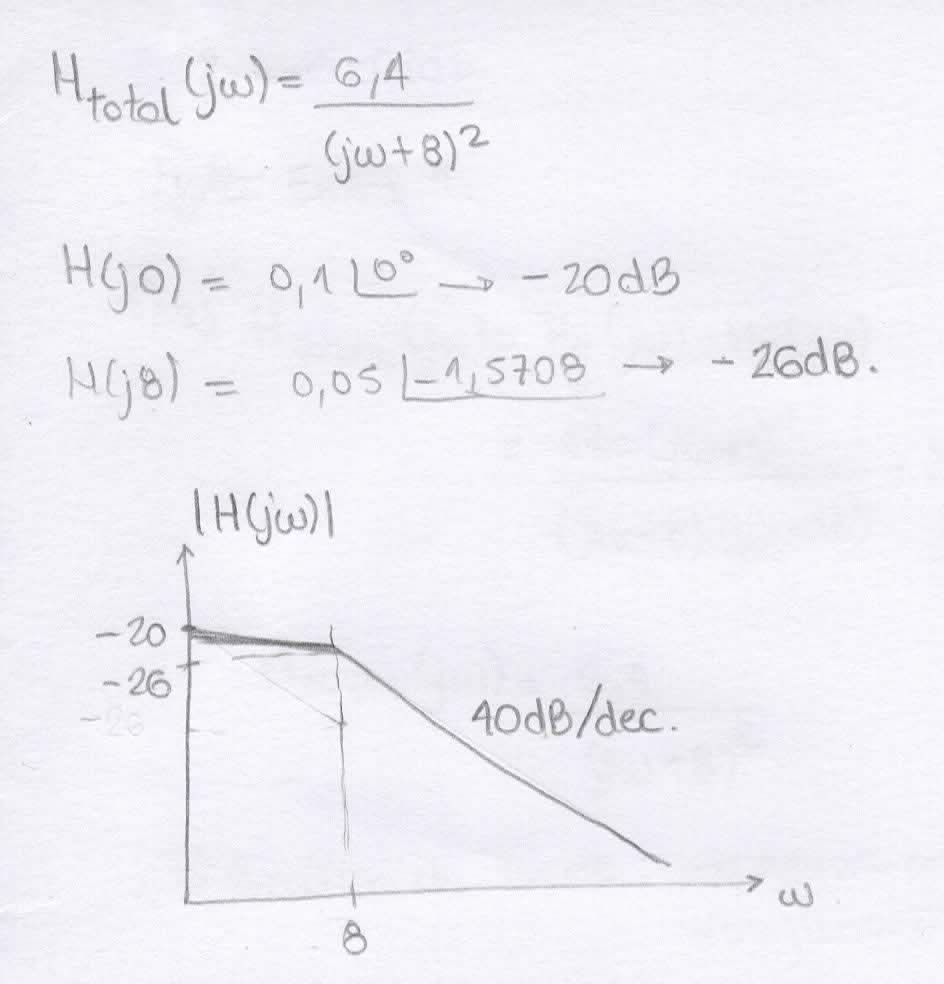 Htotal(jω) = 6,4
(jω+8)²
H(j0) = 0,1 ∠0° → -20dB
H(j8) = 0,05 ∠-1,5708 → - 26dB.
|H(jω)|
-20
-26
-26
40dB/dec.
ω
8